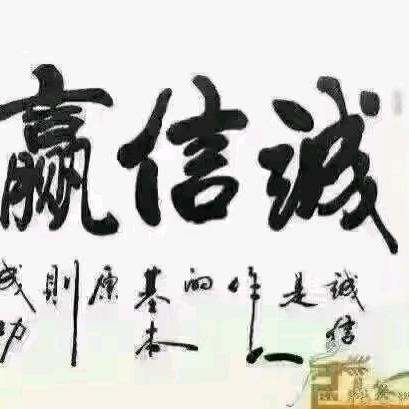 诚信赢
誠信是作人的基本原則成功